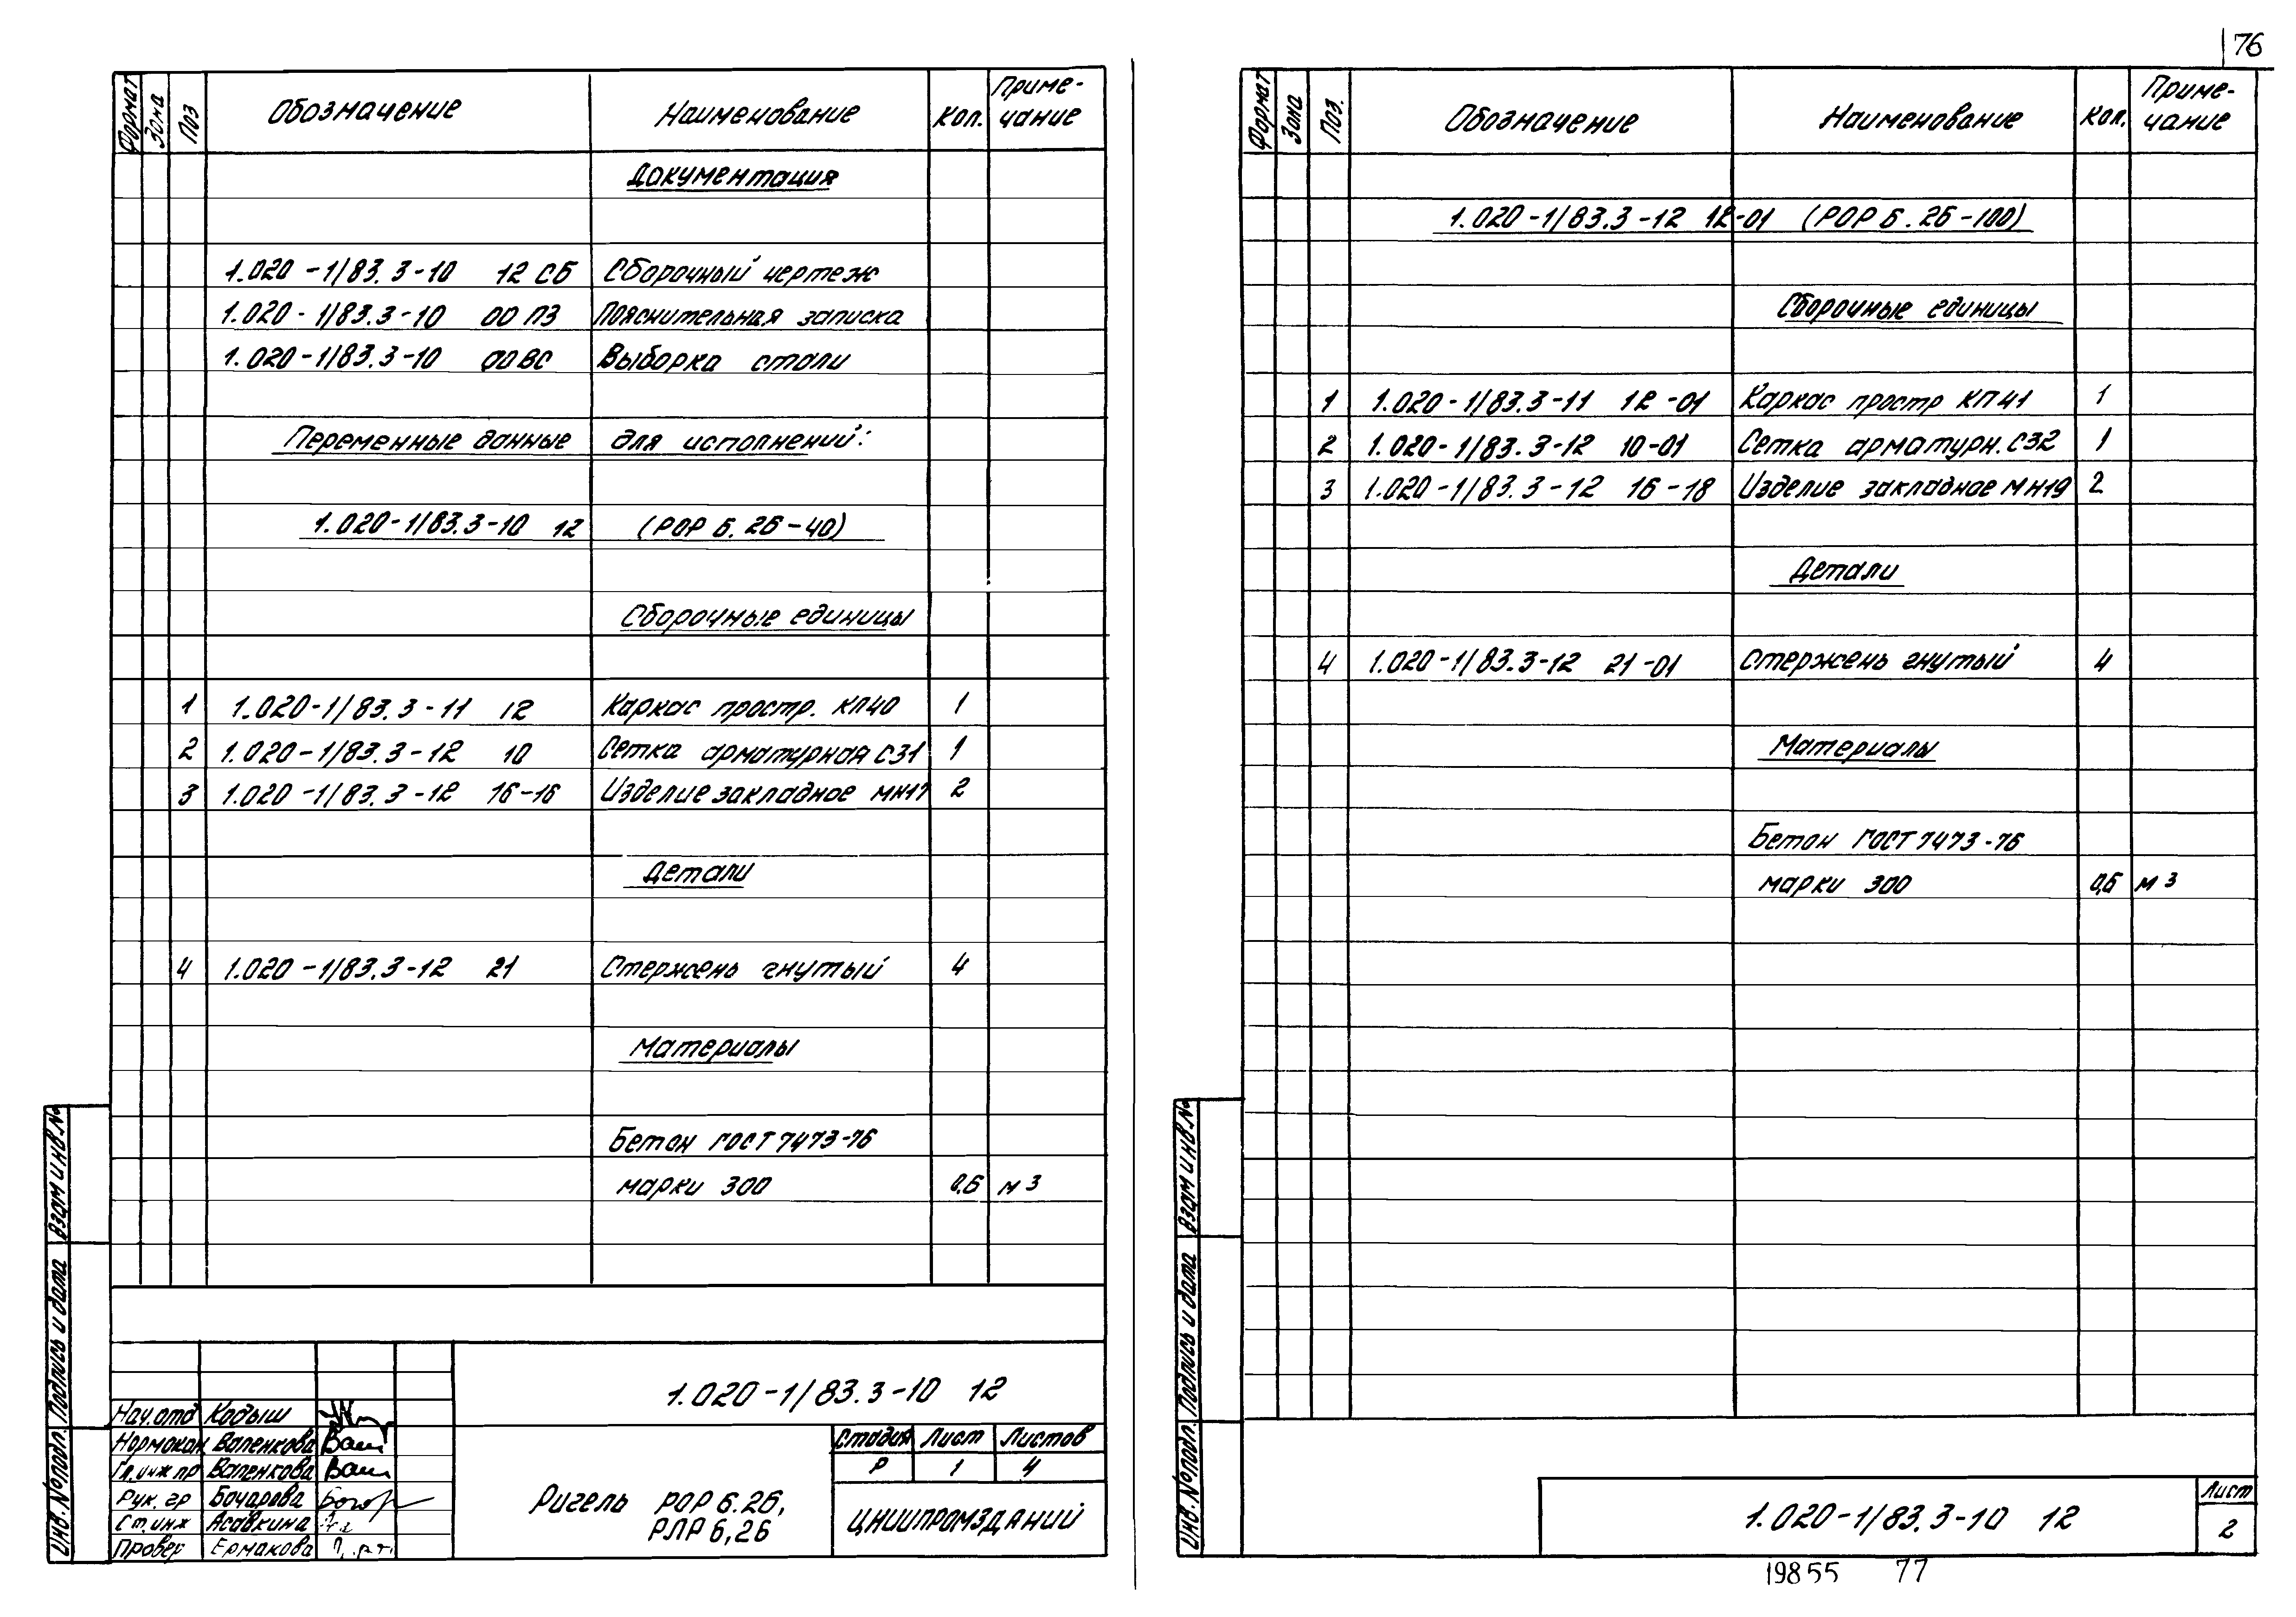 76
Формат Зона Поз Обозначение Наименование Кол. Приме-
чание
Документация
1.020-1/83.3-10 12 СБ Сборочный чертеж
1.020-1/83.3-10 00 ПЗ Пояснительная записка
1.020-1/83.3-10 00 ВС Выборка стали
Переменные данные для исполнений:
1.020-1/83.3-10 12 (РОР 6.26-40)
Сборочные единицы
1 1.020-1/83.3-11 12 Каркас простр. КП40 1
2 1.020-1/83.3-12 10 Сетка арматурная С31 1
3 1.020-1/83.3-12 16-16 Изделие закладное МН17 2
Детали
4 1.020-1/83.3-12 21 Стержень гнутый 4
Материалы
Бетон ГОСТ 7473-76
марки 300 0,6 м3
1.020-1/83.3-10 12
Нач.отд Кодыш
Нормокон Валенкова
Гл.инж пр Валенкова
Рук. гр Бочарова
Ст.инж Асавкина
Провер Ермакова
Ригель РОР 6.26,
РЛР 6,26
Стадия Лист Листов
Р 1 4
ЦНИИПРОМЗДАНИЙ
Инв.№подл. Подпись и дата Взам инв.№
Формат Зона Поз. Обозначение Наименование Кол. Приме-
чание
1.020-1/83.3-12 12-01 (РОР 6.26-100)
Сборочные единицы
1 1.020-1/83.3-11 12-01 Каркас простр КП41 1
2 1.020-1/83.3-12 10-01 Сетка арматурн. С32 1
3 1.020-1/83.3-12 16-18 Изделие закладное МН19 2
Детали
4 1.020-1/83.3-12 21-01 Стержень гнутый 4
Материалы
Бетон ГОСТ 7473-76
марки 300 0,6 м3
Инв.№подл. Подпись и дата Взам инв.№
1.020-1/83.3-10 12
Лист
2
19855 77